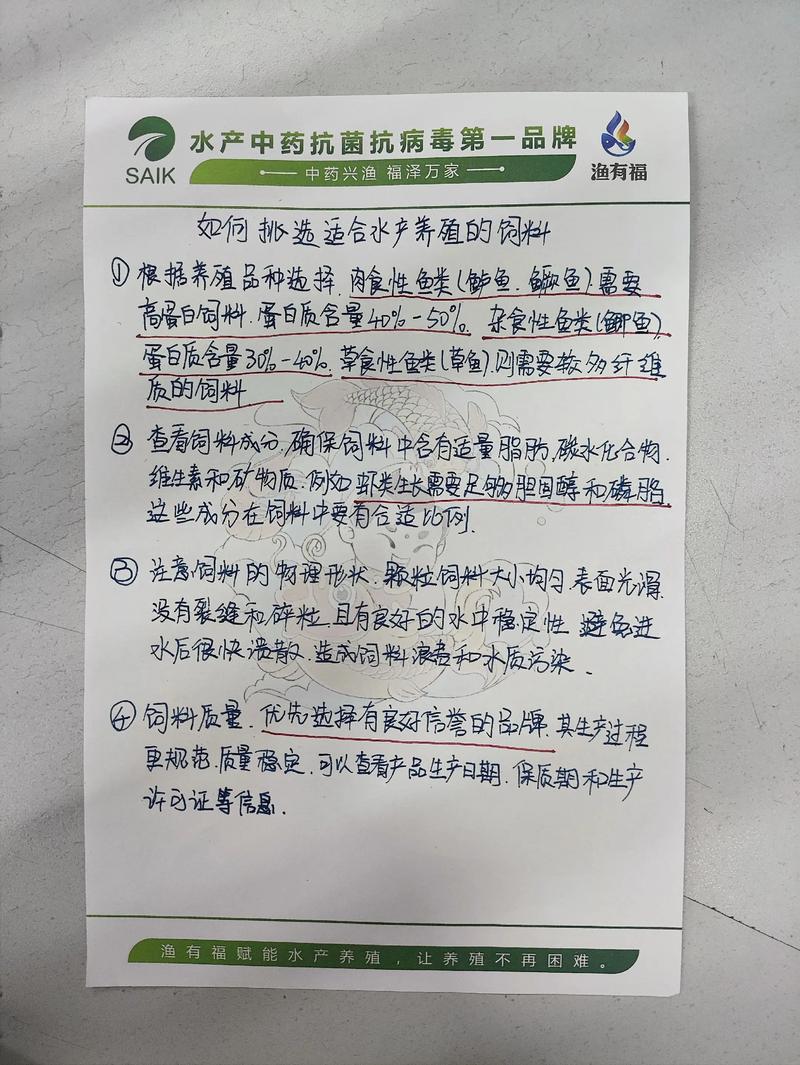 水产中药抗菌抗病毒第一品牌
SAIK
中药兴渔 福泽万家
渔有福
如何挑选适合水产养殖的饲料
① 根据养殖品种选择. 肉食性鱼类(鲈鱼. 鳜鱼). 需要
高蛋白饲料. 蛋白质含量40%-50%. 杂食性鱼类(鲫鱼).
蛋白质含量30%-40%. 草食性鱼类(草鱼). 则需要较多纤维
质的饲料
② 查看饲料成分. 确保饲料中含有适量脂肪. 碳水化合物.
维生素和矿物质. 例如 虾类生长需要足够胆固醇和磷脂
这些成分在饲料中要有合适比例.
③ 注意饲料的物理形状. 颗粒饲料大小均匀. 表面光滑.
没有裂缝和碎粒. 且有良好的水中稳定性 避免进
水后很快溃散. 造成饲料浪费和水质污染.
④ 饲料质量. 优先选择有良好信誉的品牌. 其生产过程
更规范. 质量稳定. 可以查看产品生产日期. 保质期和生产
许可证等信息.
渔有福赋能水产养殖，让养殖不再困难。